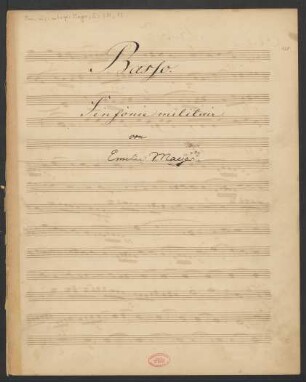 Basso.
Sinfonie militair
von
Emilie Mayer